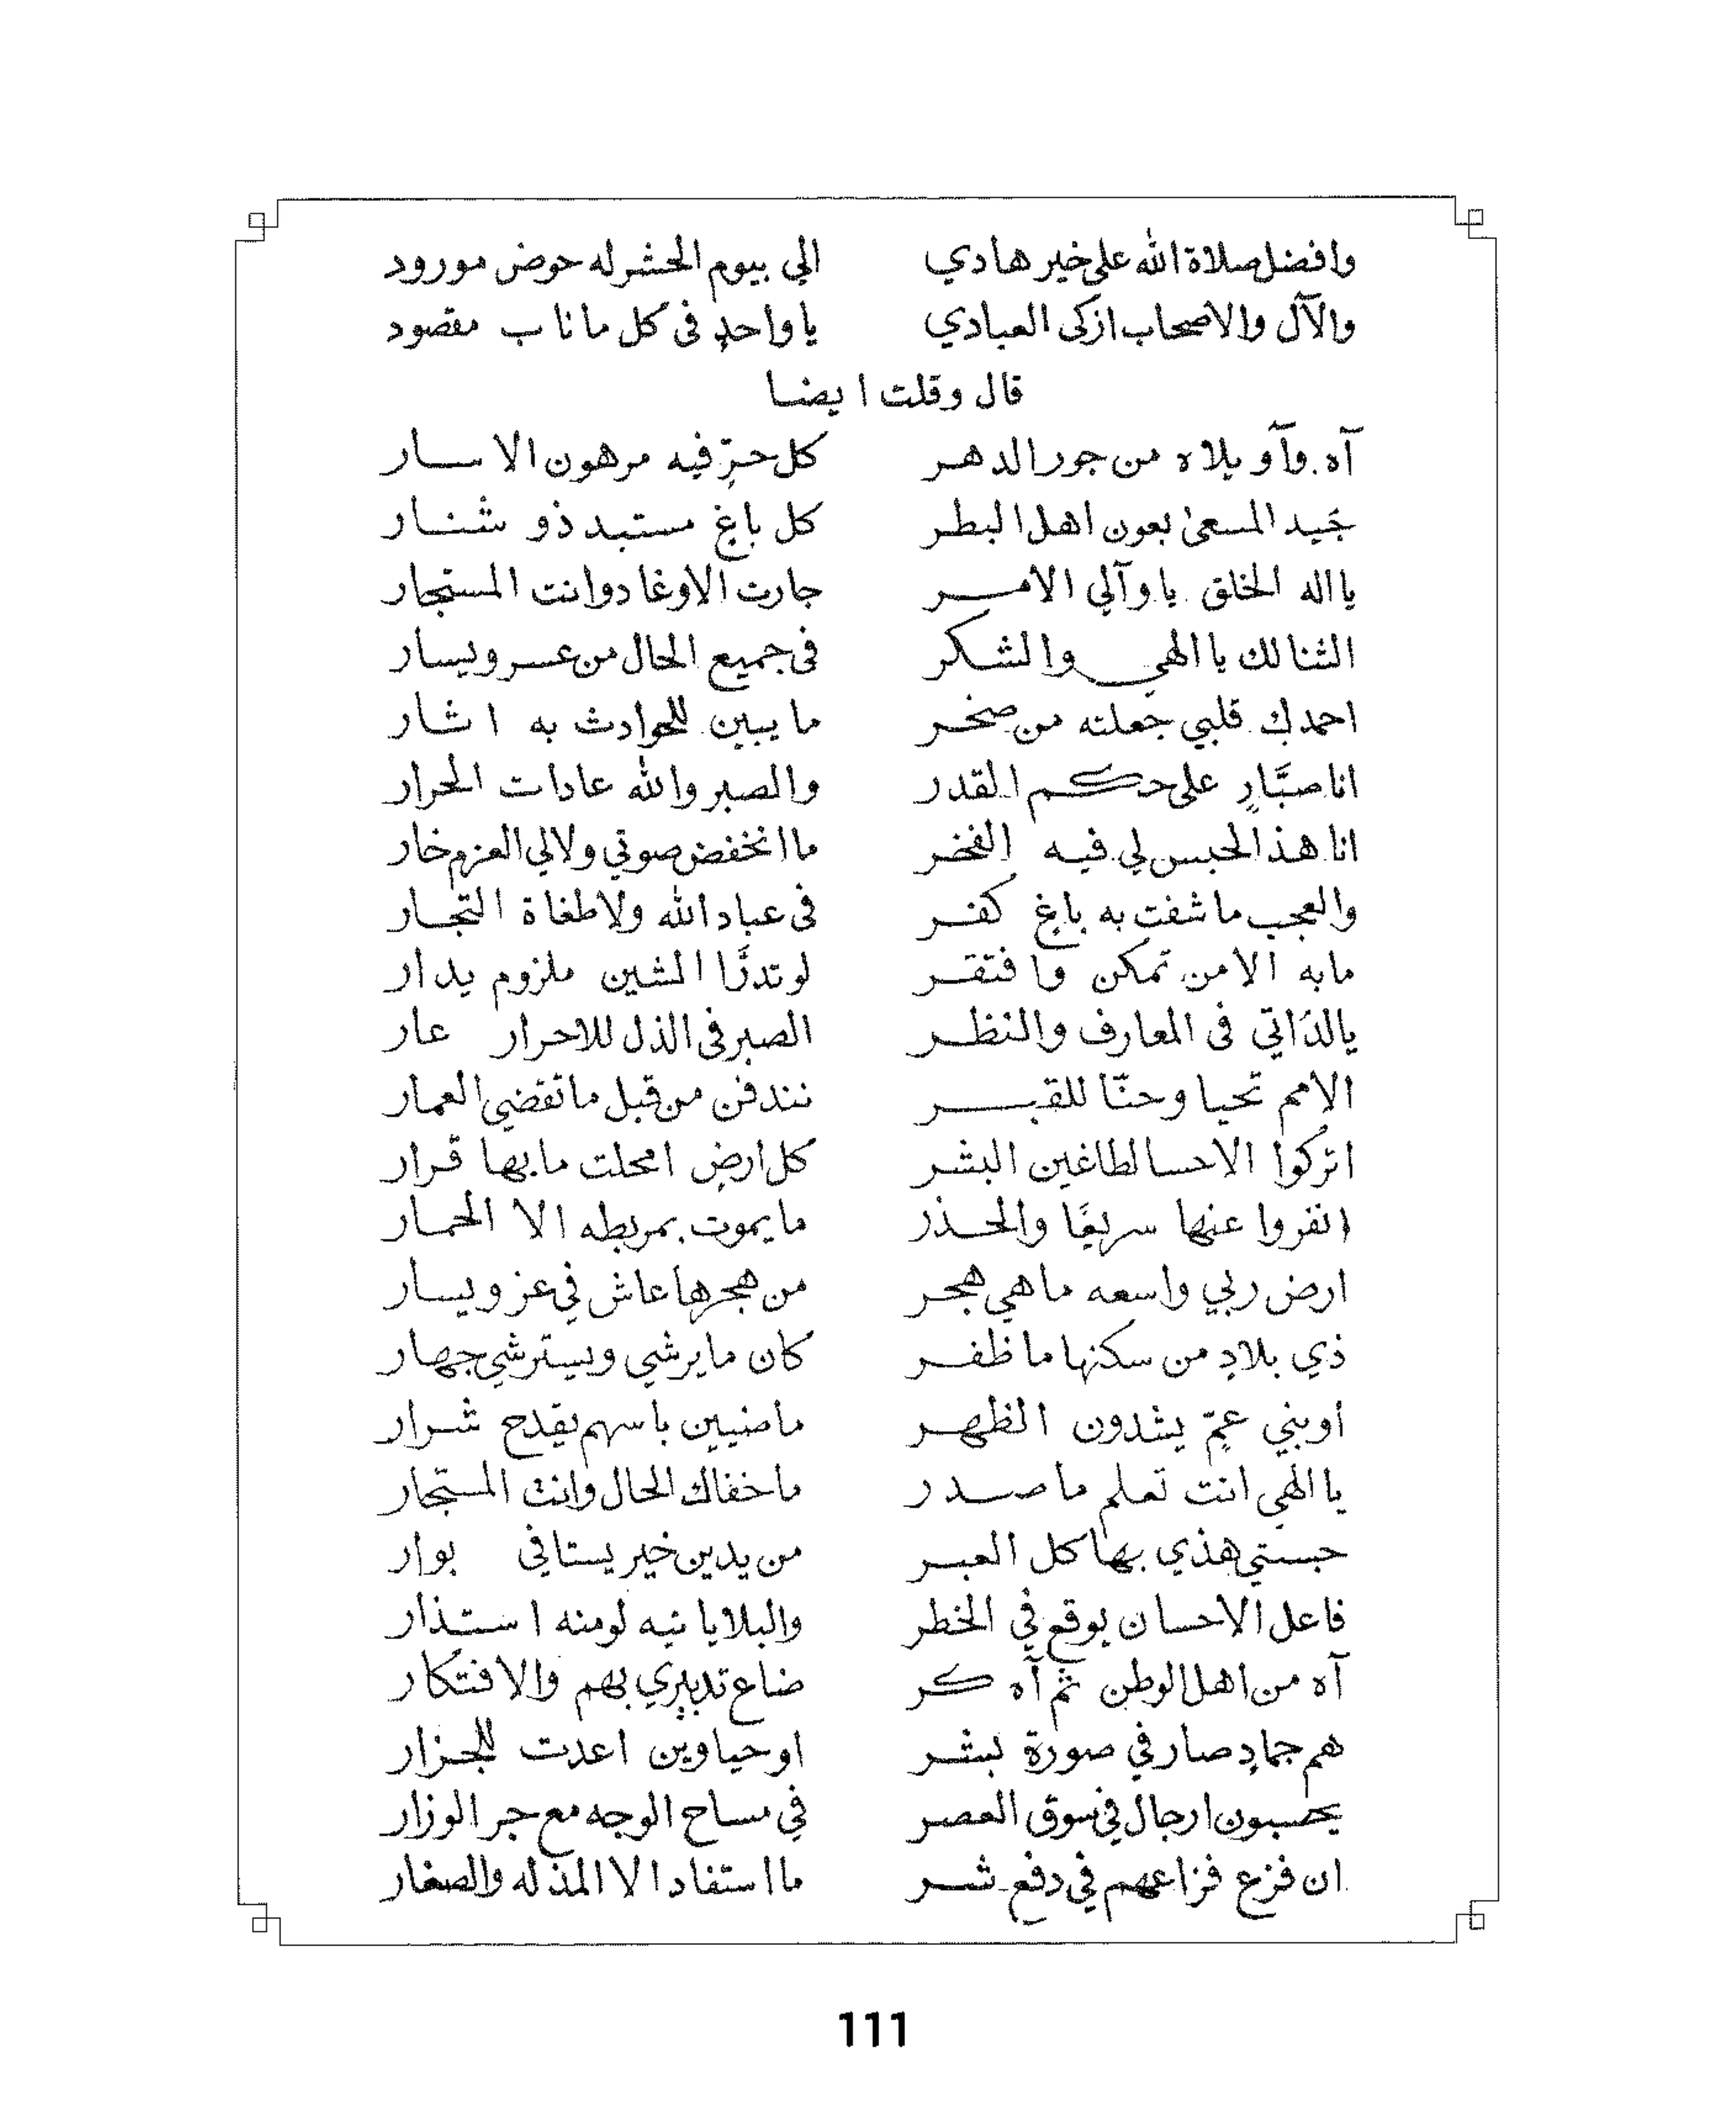 وافضل صلاة الله على خير هادي الي بيوم الحشر له حوض مورود
والآل والاصحاب ازكى العبادي ياواحدٍ في كل ماناب مقصود
قال وقلت ايضا
آه وآويلاه من جور الدهر كل حرٍّ فيه مرهون الاسار
جَيد المسعىٰ بعون اهل البطر كل باغٍ مستبد ذو شنار
يا اله الخلق ياوآلي الامر جارت الاوغاد وانت المستجار
الثنا لك يا الهي والشكر في جميع الحال من عسر ويسار
احمدك قلبي جعلته من صخر ما يبين للحوادث به اثار
انا صبَّارٍ على حكم القدر والصبر والله عادات الحرار
انا هذا الحبس لي فيه الفخر ما انخفض صوتي ولالي العزم خار
والعجب ماشفت به باغٍ كفر في عباد الله ولا طغاة التجار
مابه الامن تمكن وافتقر لو تدرَّا الشين ملزوم يدار
يالذاتي في المعارف والنظر الصبر في الذل للاحرار عار
الامم تحيا وحنّا للقبر نندفن من قبل ماتقضي العمار
اتركوا الاحسا لطاغين البشر كل ارضٍ امحلت مابها قرار
انفروا عنها سريعًا والحذر مايموت بمربطه الا الحمار
ارض ربي واسعه ماهي هجر من هجرها عاش في عز ويسار
ذي بلادٍ من سكنها ماظفر كان مايرشي ويسترشي جهار
أوبني عمٍّ يشدون الظهر ماضيين باسهم يقدح شرار
يا الهي انت تعلم ماصدر ماخفاك الحال وانت المستجار
حبستي هذي بها كل العبر من يدين خير يستافي بوار
فاعل الاحسان يوقع في الخطر والبلايا تيه لومنه استذار
آه من اهل الوطن ثم آه كر ضاع تدبيري بهم والافتكار
هم جمادٍ صار في صورة بشر اوحياوين اعدت للجزار
يحسبون ارجال في سوق العصر في مساح الوجه مع جر الوزار
ان فزع فزاعهم في دفع شر ما استفاد الا المذله والصغار
111